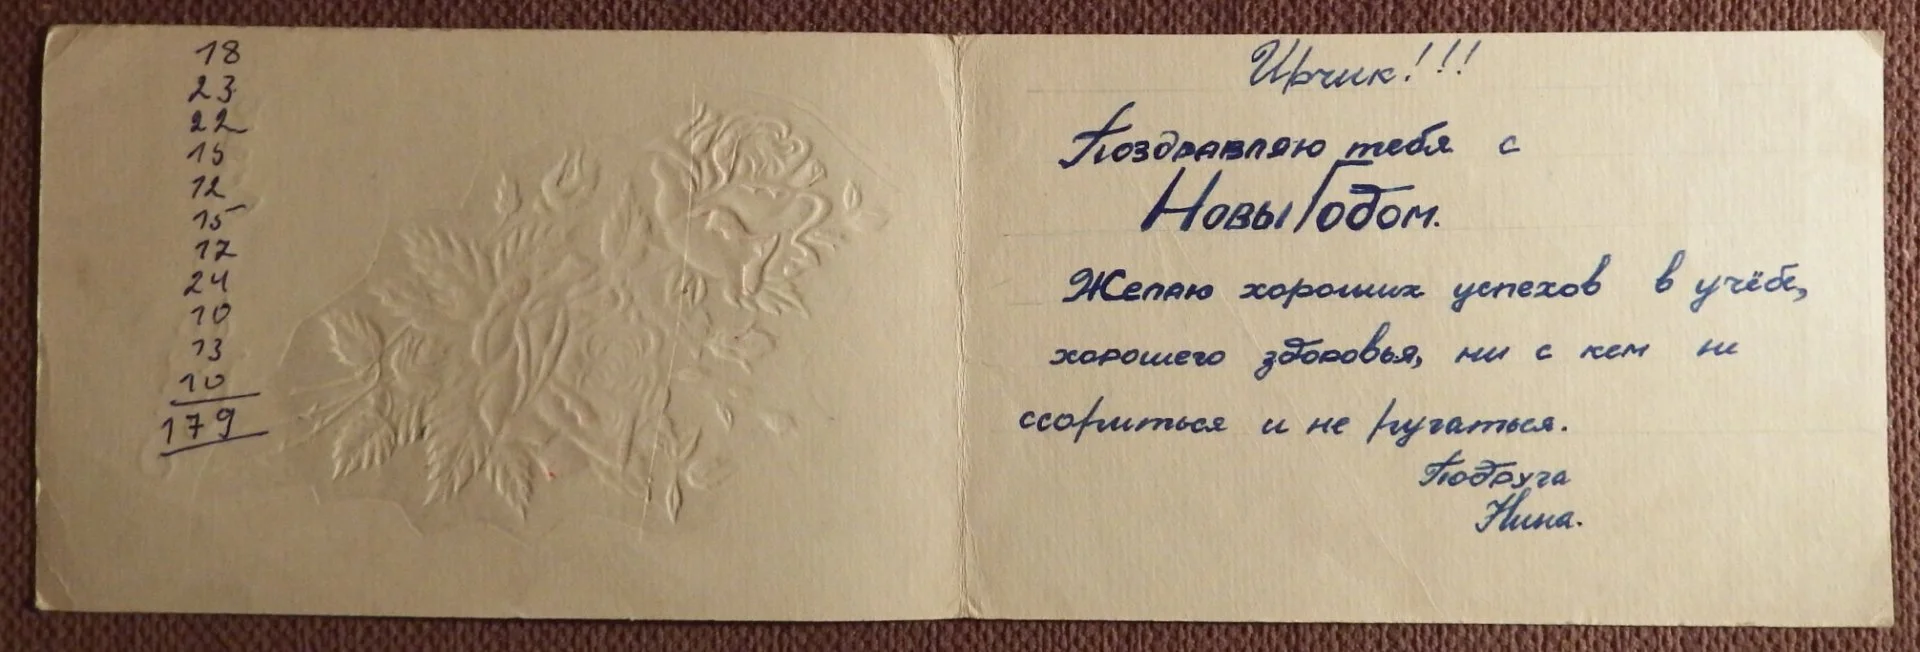 18
23
22
15
12
15
17
24
10
13
10
179
Ирчик!!!
Поздравляю тебя с
Новы Годом.
Желаю хороших успехов в учёбе,
хорошего здоровья, ни с кем не
ссориться и не ругаться.
Подруга
Нина.